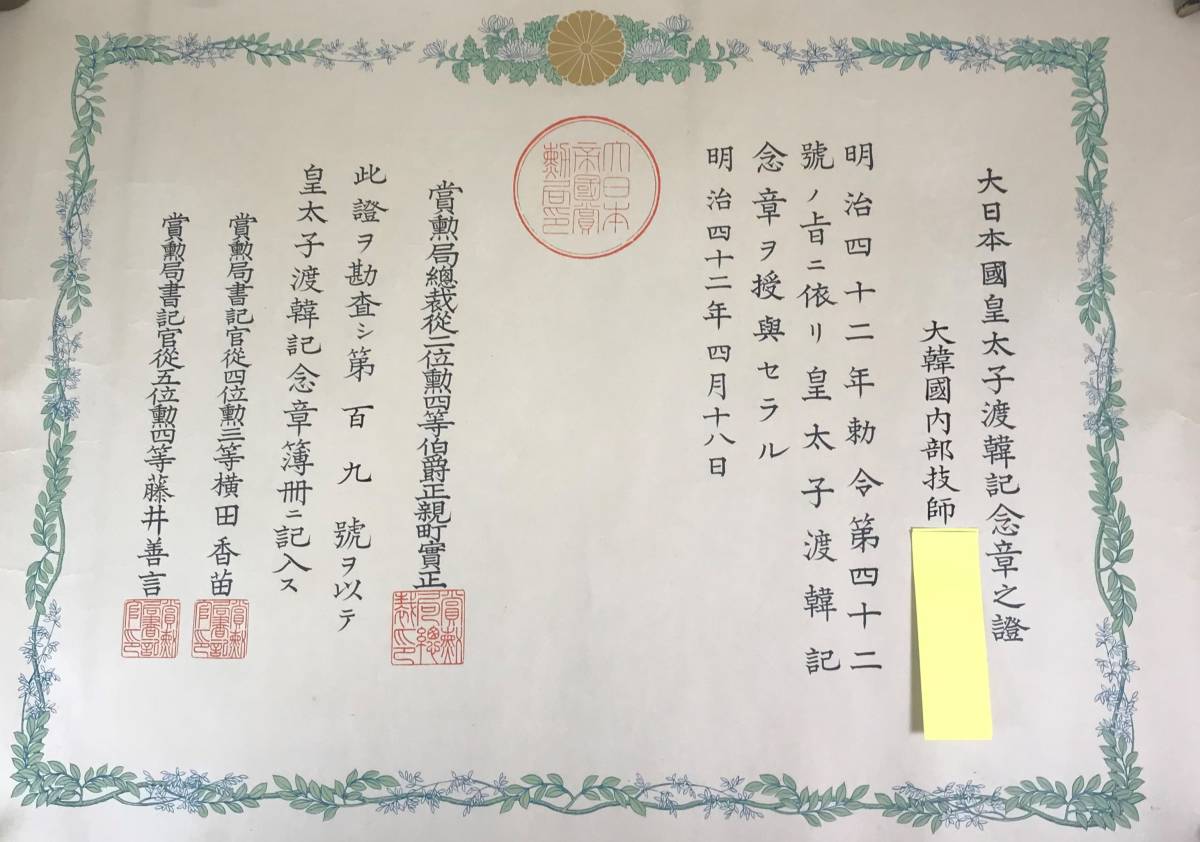 大日本國皇太子渡韓記念章之證
大韓國内部技師
明治四十二年勅令第四十二
號ノ旨ニ依リ皇太子渡韓記
念章ヲ授與セラル
明治四十二年四月十八日
大日本
帝國賞
勲局印
賞勲局總裁從二位勲四等伯爵正親町實正
賞勲
局總
裁印
此證ヲ勘査シ第百九號ヲ以テ
皇太子渡韓記念章簿冊ニ記入ス
賞勲局書記官從四位勲三等横田香苗
賞勲
局書記
官印
賞勲局書記官從五位勲四等藤井善言
賞勲
局書記
官印